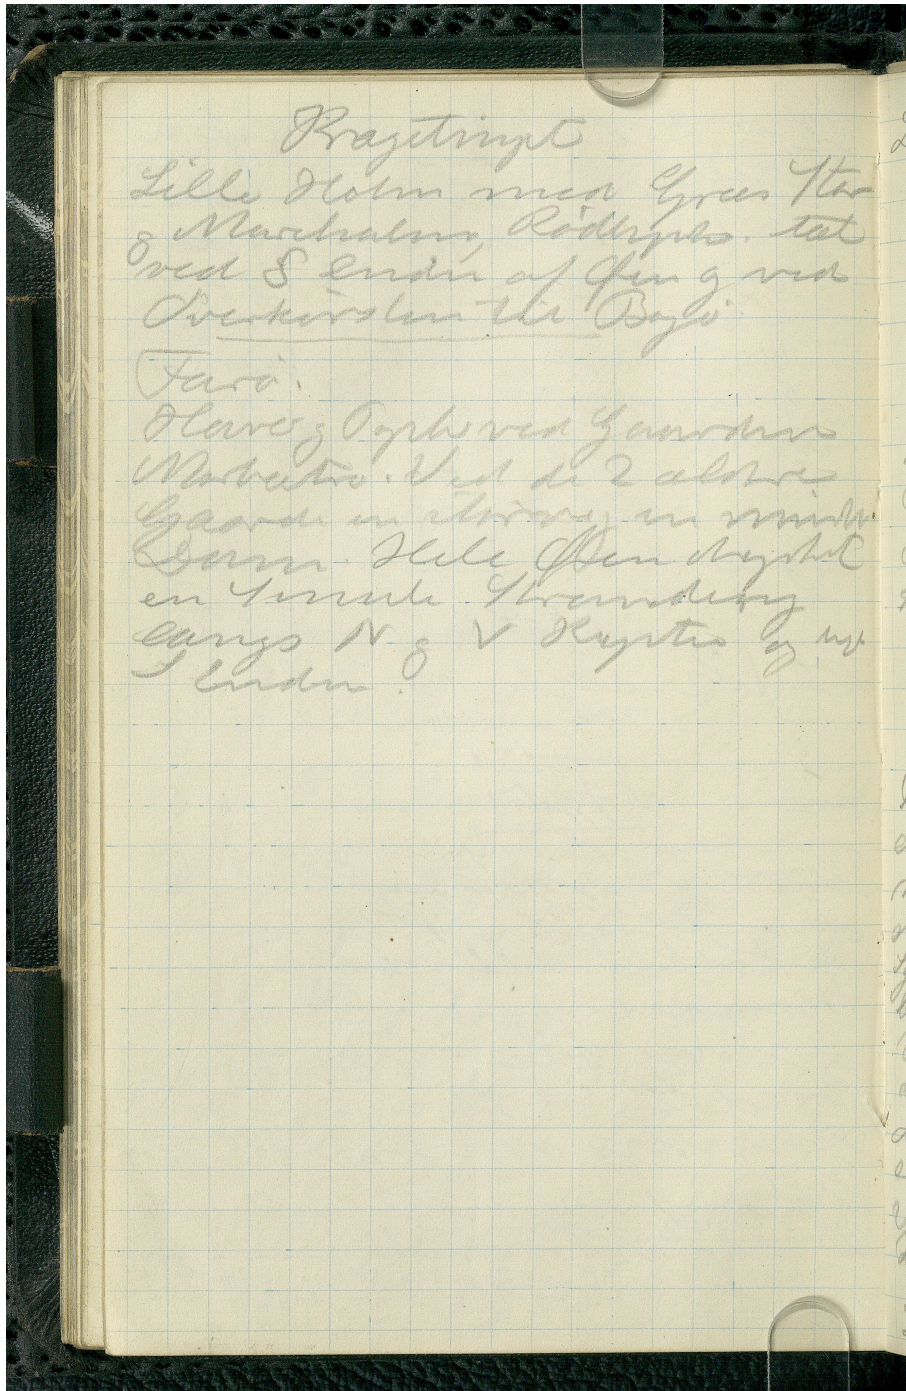 Kragetinget
Lille Holm med Græs Star
og Marehalm, Rødknæb. tæt
ved S Enden af Øen og ved
Overkørslen til Bogø
Farø.
Have og Pople ved Gaarden
Ved de 2 ældre
Gaarde en større og en mindre
Dam Hele Øen dyrket
en Smule Strandeng
langs N og V Kysten og ved
S Enden.